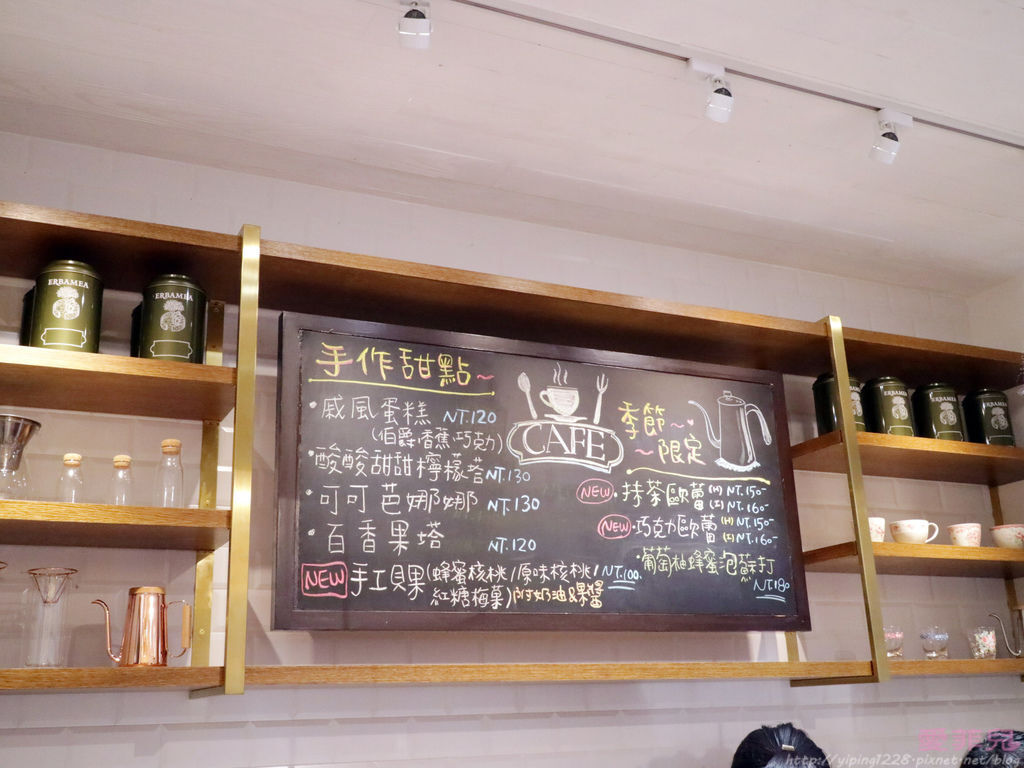 ERBAMEA
ERBAMEA
手作甜點~
·戚風蛋糕 NT.120
(伯爵·香蕉·巧克力)
·酸酸甜甜檸檬塔 NT.130
·可可芭娜娜 NT.130
·百香果塔 NT.120
NEW 手工貝果(蜂蜜核桃/原味核桃/ NT.100.
紅糖梅菓)附奶油&果醬
CAFE
季節~
~限定
NEW ·抹茶歐蕾 (H) NT.150-
(I) NT.160-
NEW ·巧克力歐蕾 (H) NT.150-
(I) NT.160-
·葡萄柚蜂蜜泡蘇打
NT.180
http://yiping1228.pixnet.net/blog